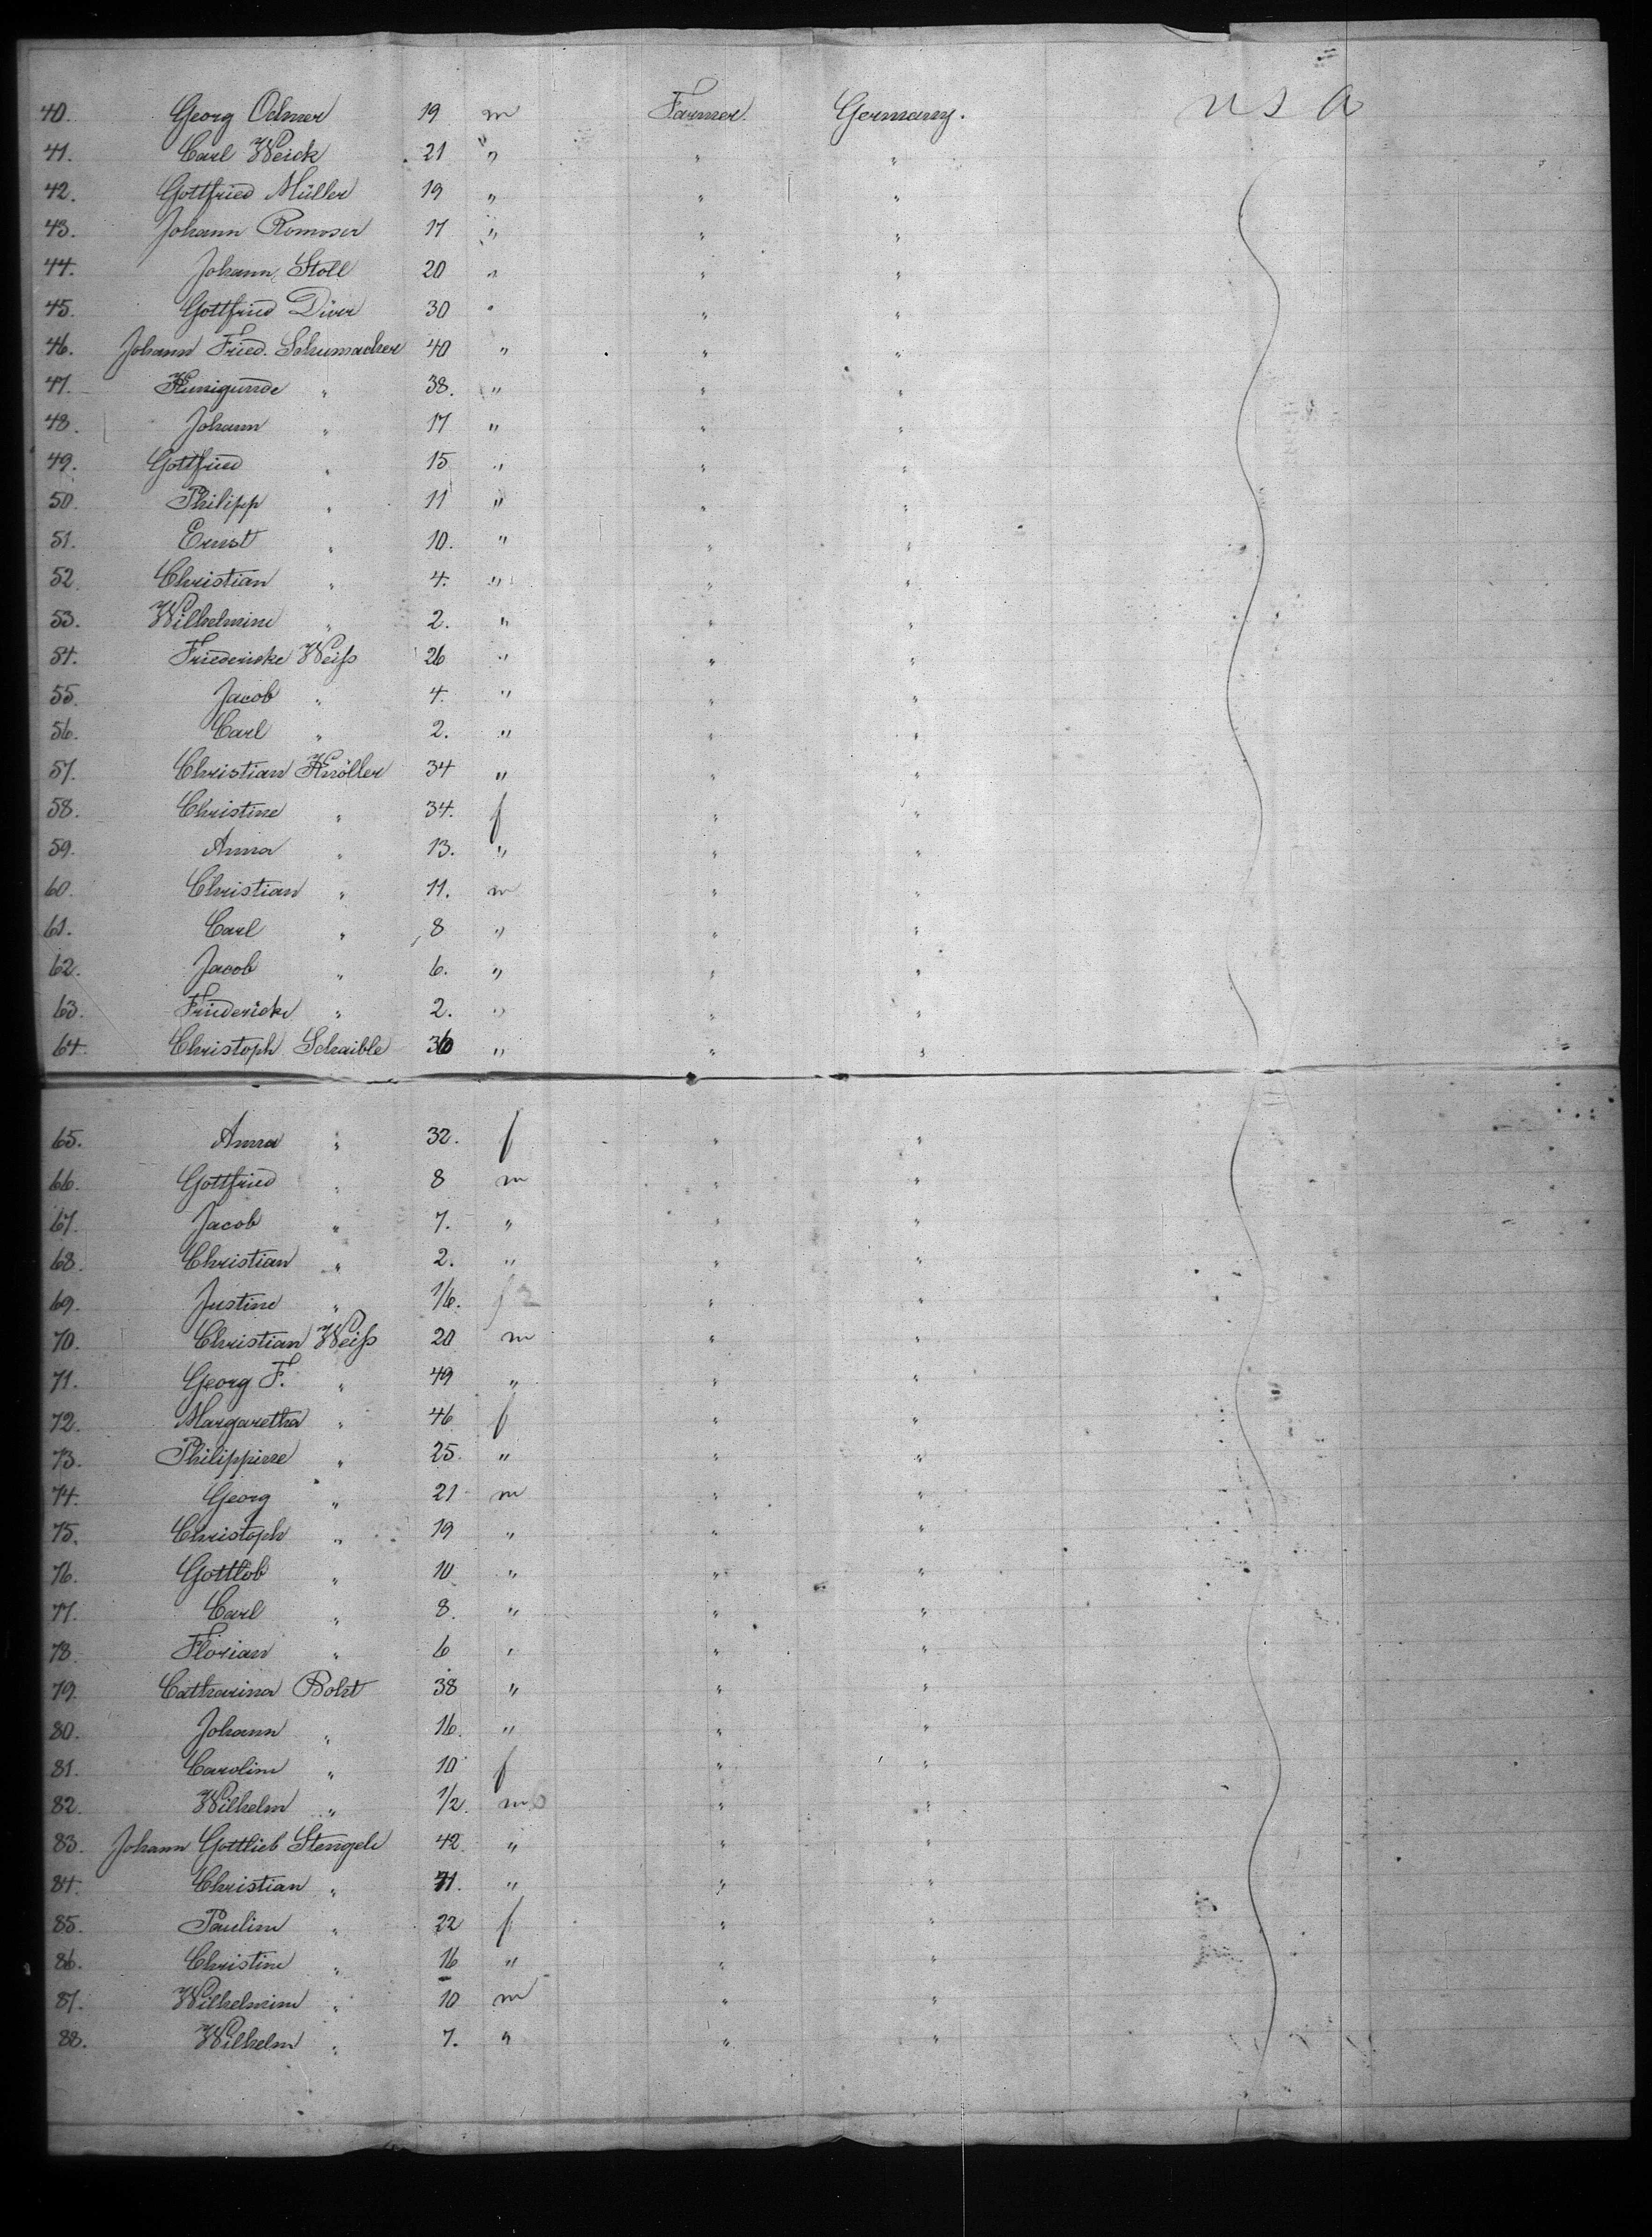 40. Georg Oelmer 19 m Farmer. Germany. U S A
41. Carl Weick 21 " " "
42. Gottfried Müller 19 " " "
43. Johann Romoser 17 " " "
44. Johann Stoll 20 " " "
45. Gottfried Diver 30 " " "
46. Johann Fried. Schumacher 40 " " "
47. Kunigunde " 38. " " "
48. Johann " 17 " " "
49. Gottfried " 15 " " "
50. Philipp " 11 " " "
51. Ernst " 10. " " "
52. Christian " 4. " " "
53. Wilhelmine " 2. " " "
54. Friedericke Weiß 26 " " "
55. Jacob " 4. " " "
56. Carl " 2. " " "
57. Christian Knöller 34 " " "
58. Christine " 34. f " "
59. Anna " 13. " " "
60. Christian " 11. m " "
61. Carl " 8 " " "
62. Jacob " 6. " " "
63. Friedericke " 2. " " "
64. Christoph Schaible 36 " " "
65. Anna " 32. f " "
66. Gottfried " 8 m " "
67. Jacob " 7. " " "
68. Christian " 2. " " "
69. Justine " 1/6. f 2 " "
70. Christian Weiß 20 m " "
71. Georg F. " 49 " " "
72. Margaretha " 46 f " "
73. Philippine " 25. " " "
74. Georg " 21 m " "
75. Christoph " 19 " " "
76. Gottlob " 10 " " "
77. Carl " 8. " " "
78. Florian " 6 " " "
79. Catharina Boht 38 " " "
80. Johann " 16. " " "
81. Caroline " 10 f " "
82. Wilhelm " 1/2. m 6 " "
83. Johann Gottlieb Stengele 42 " " "
84. Christian " 71. " " "
85. Pauline " 22 f " "
86. Christine " 16 " " "
87. Wilhelmine " 10 m " "
88. Wilhelm " 7. " " "